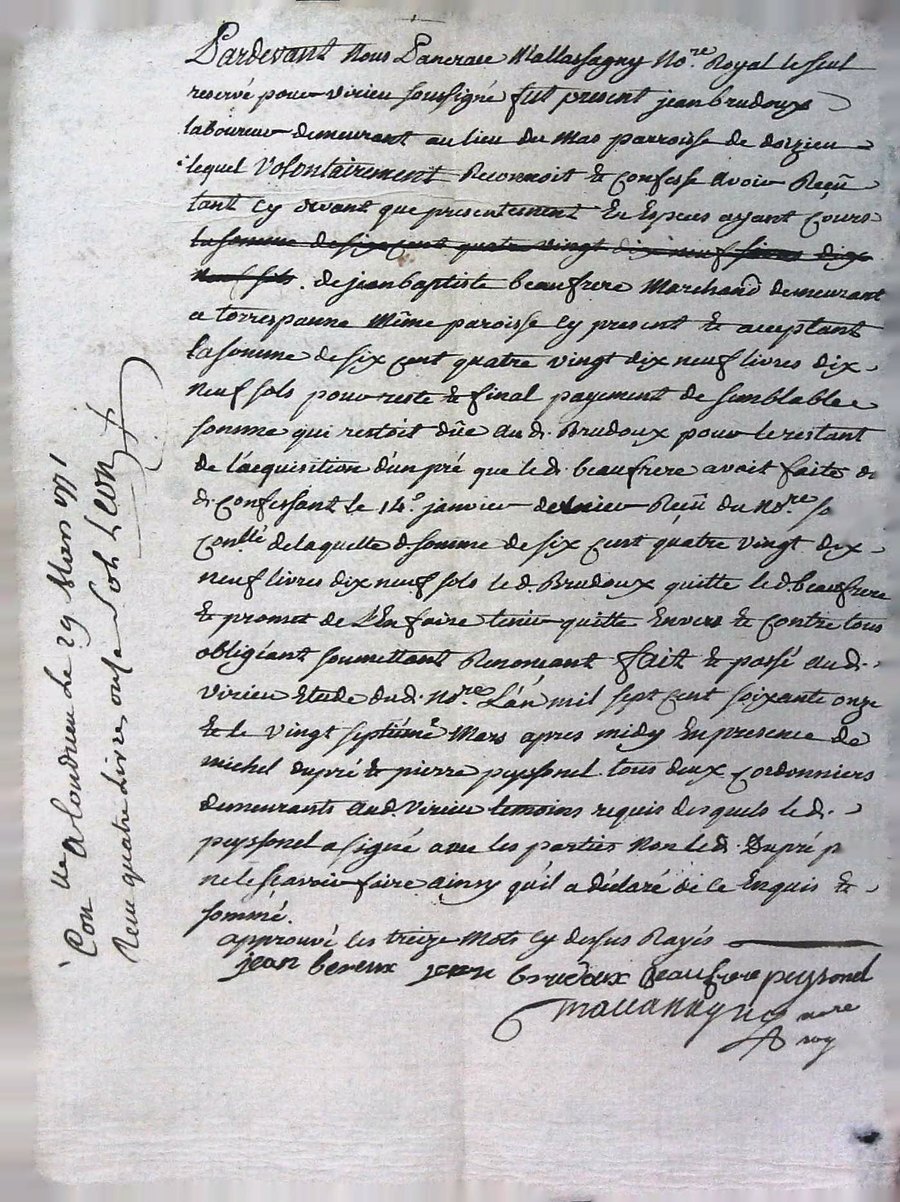 Pardevant Nous Pancrace Mallassagny No.re Royal le seul
reservé pour virieu soussigné fut present jean brudoux
laboureur demeurant au lieu du Mas parroisse de doizieu
lequel Volontairement Reconnoit & confesse avoir Reçû
tant Cy devant que presentement En Especes ayant Cours
la somme de six cent quatre vingt dix neuf livres dix
neuf sols. de jean baptiste beaufrere Marchand demeurant
a torrepanne Même paroisse Cy present & aceptant
la somme de six cent quatre vingt dix neuf livres dix
neuf sols pour reste & final payement de semblable
somme qui restoit dûe au d. Brudoux pour le restant
de l'acquisition d'un pré que le d. beaufrere avoit faite du
d. confessant le 14.e janvier dernier Reçû du No.re so
de laquelle d. somme de six cent quatre vingt dix
neuf livres dix neuf sols le d. Brudoux quitte le d. beaufrere
& promet de L'En faire tenir quitte Envers & contre tous
obligeant soumettant Renoncant fait & passé au d.
virieu Etude du d. No.re L'an mil sept cent soixante onze
& le vingt septième Mars apres midy En presence de
michel dupré & pierre peyssonel tous deux cordonniers
demeurants au d. Virieu temoins requis desquels le d.
peyssonel a signé avec les parties Non le d. Dupré p
ne le scavoir faire ainsy qu'il a déclaré de ce Enquis &
sommé.
approuvé les treize Mots Cy dessus Rayés
jean brudoux Beaufrere peyssonel
mallassagny no.re
roy
Con.lle A Condrieu Le 29 Mars 1771
Reçu quatre Livres onze sols